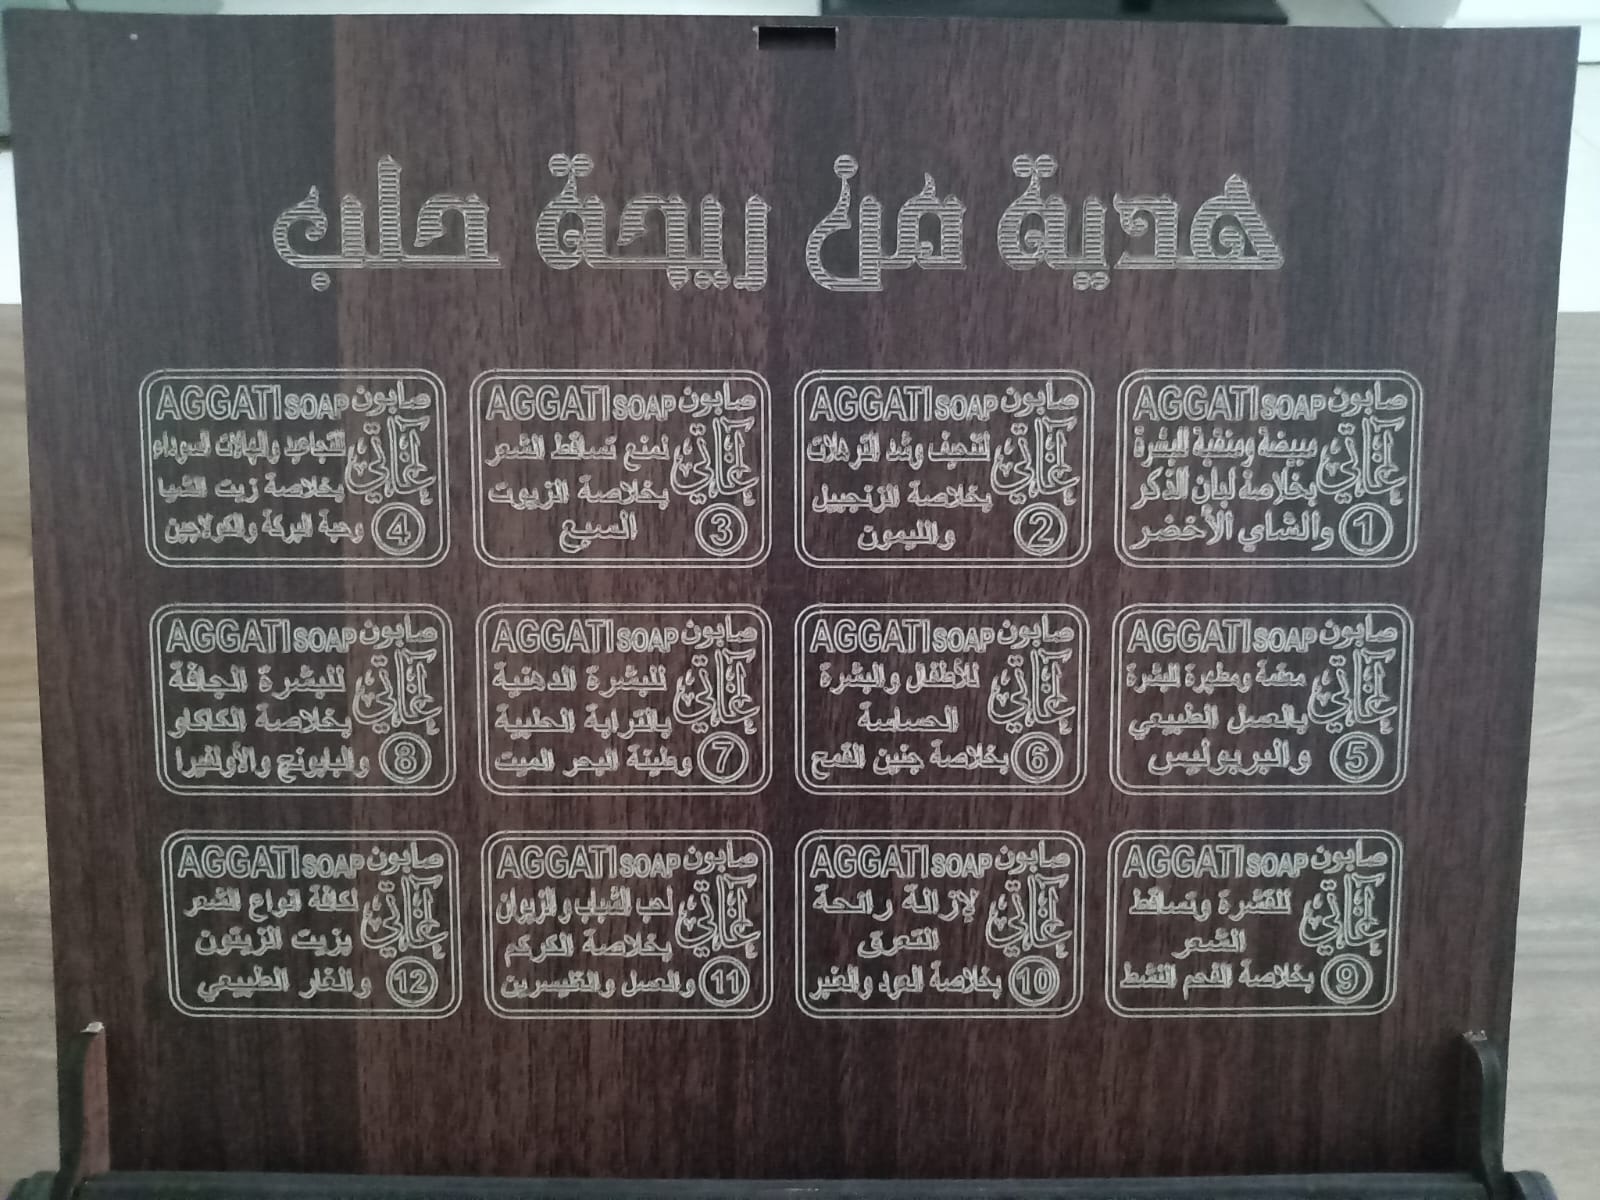 هدية من ريحة حلب
AGGATI SOAP صابون
آغاتي
مبيضة ومنقية للبشرة
بخلاصة لبان الذكر
والشاي الأخضر
1
AGGATI SOAP صابون
آغاتي
لتنحيف وشد الترهلات
بخلاصة الزنجبيل
والليمون
2
AGGATI SOAP صابون
آغاتي
لمنع تساقط الشعر
بخلاصة الزيوت
السبع
3
AGGATI SOAP صابون
آغاتي
للتجاعيد والهالات السوداء
بخلاصة زيت الشيا
وحبة البركة والكولاجين
4
AGGATI SOAP صابون
آغاتي
معقمة ومطهرة للبشرة
بالعسل الطبيعي
والبربوليس
5
AGGATI SOAP صابون
آغاتي
للأطفال والبشرة
الحساسة
بخلاصة جنين القمح
6
AGGATI SOAP صابون
آغاتي
للبشرة الدهنية
بالترابة الحلبية
وطينة البحر الميت
7
AGGATI SOAP صابون
آغاتي
للبشرة الجافة
بخلاصة الكاكاو
والبابونج والألفيرا
8
AGGATI SOAP صابون
آغاتي
للقشرة وتساقط
الشعر
بخلاصة الفحم النشط
9
AGGATI SOAP صابون
آغاتي
لإزالة رائحة
التعرق
بخلاصة العود والعنبر
10
AGGATI SOAP صابون
آغاتي
لحب الشباب والزيوان
بخلاصة الكركم
والعسل والغليسرين
11
AGGATI SOAP صابون
آغاتي
لكافة انواع الشعر
بزيت الزيتون
والغار الطبيعي
12